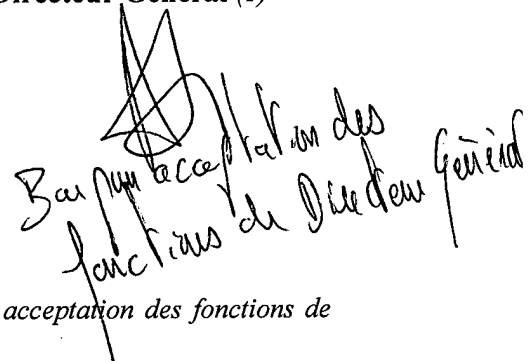 Directeur Général (1)
Bon pour acceptation des
fonctions de Directeur Général
acceptation des fonctions de